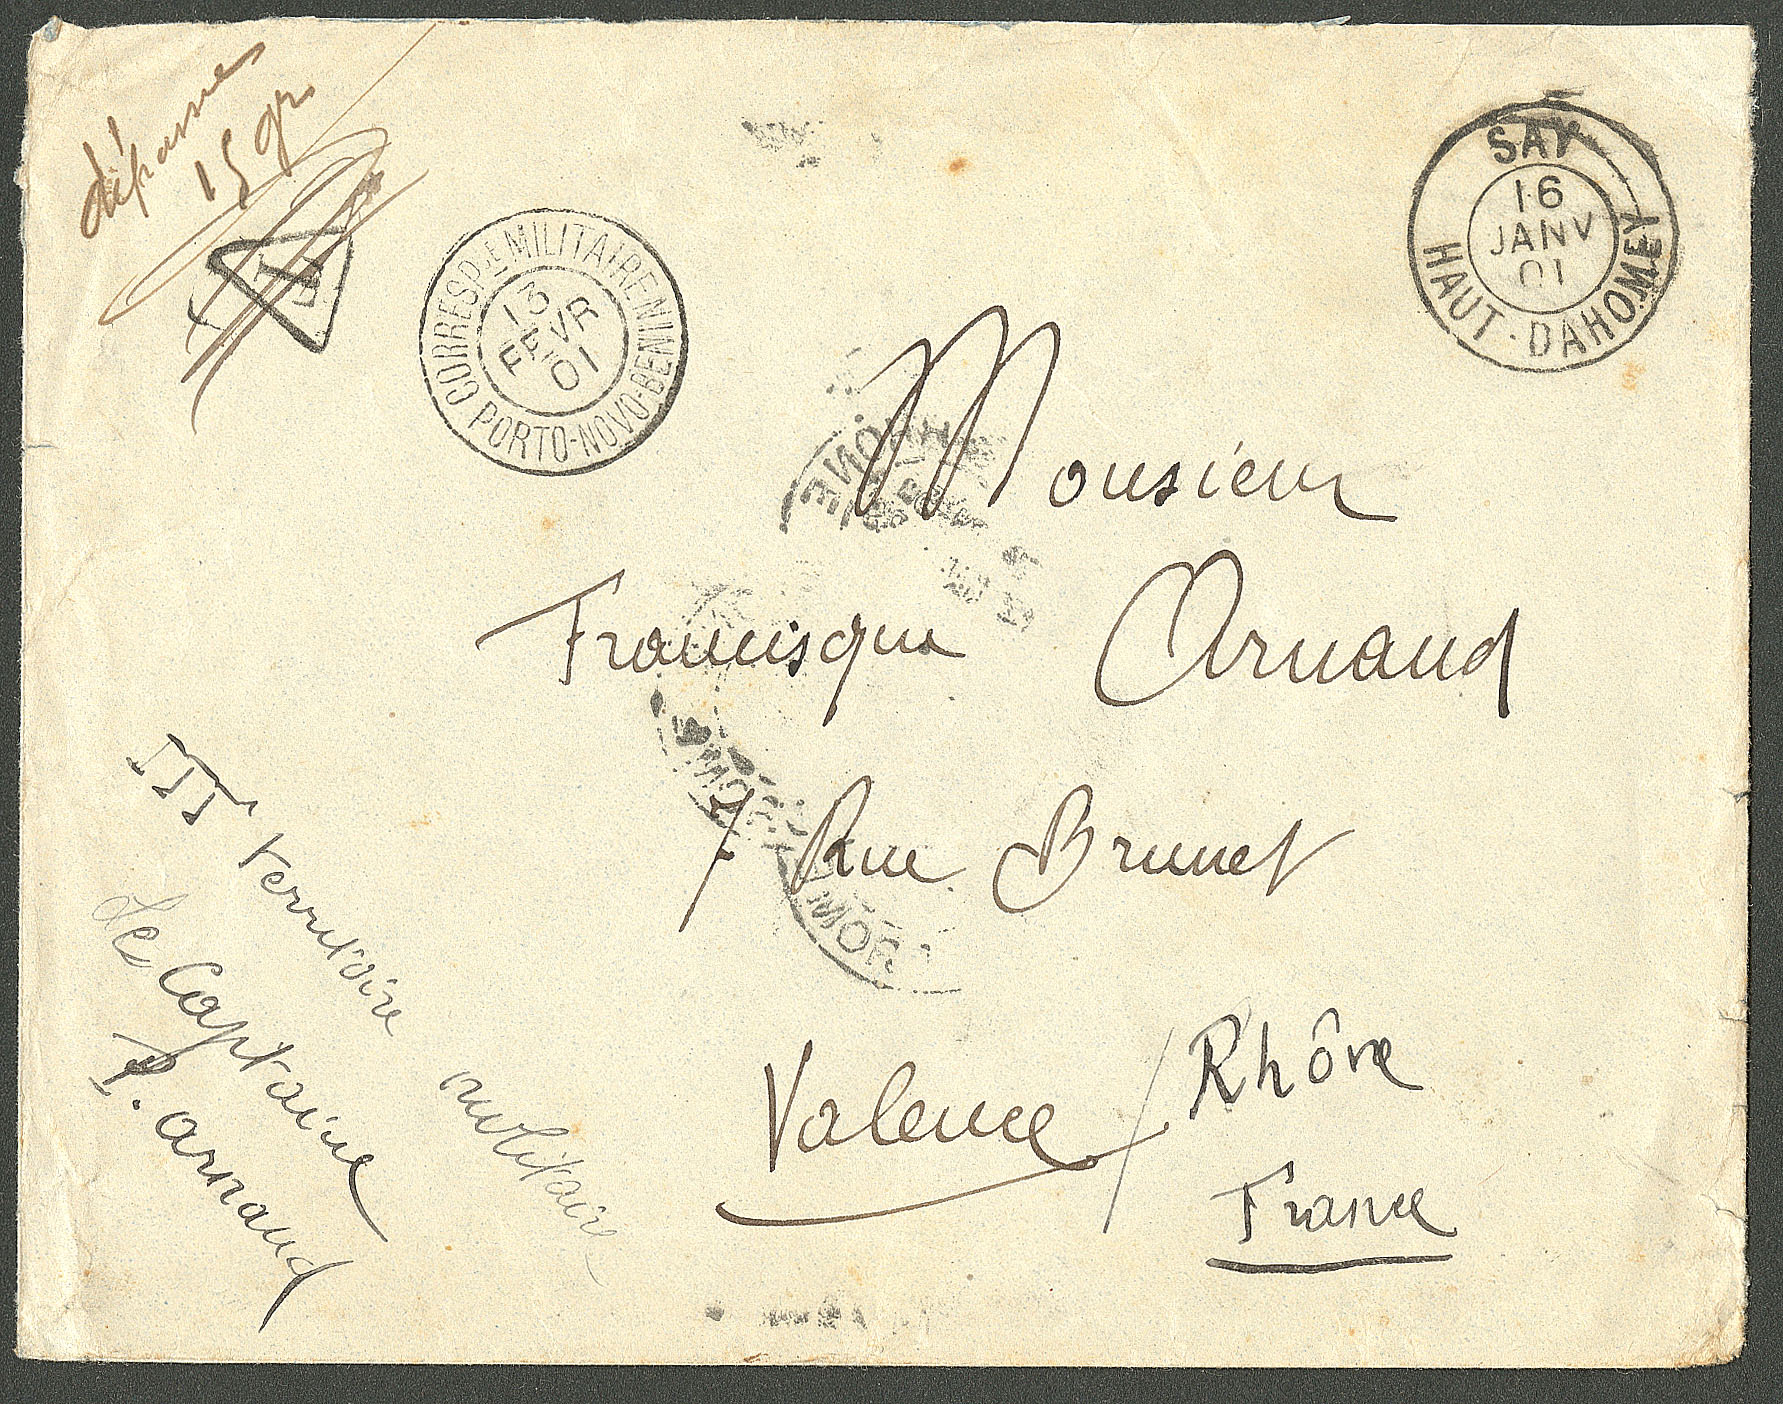 dépasse
15 gr
T
CORRESP.CE MILITAIRE BENIN
13
FEVR
01
PORTO-NOVO-BENIN
SAY
16
JANV
01
HAUT-DAHOMEY
Monsieur
Francisque Arnaud
7 Rue Brunet
Valence / Rhône
France
IIIe Territoire militaire
Le Capitaine
P. Arnaud